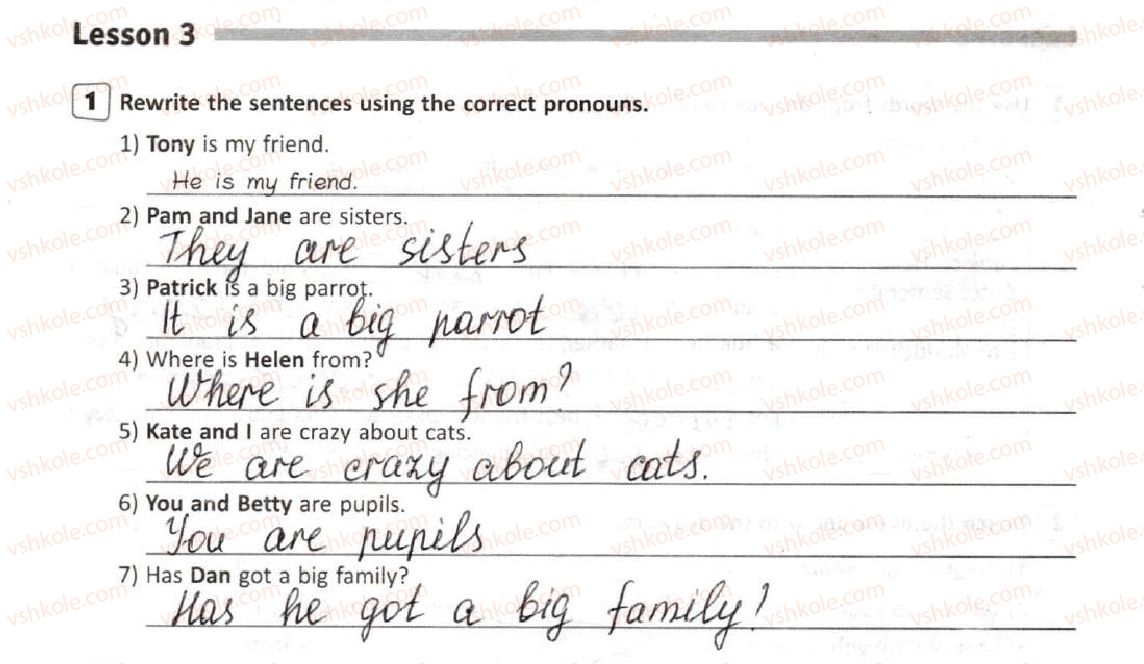 Lesson 3
1 Rewrite the sentences using the correct pronouns.
1) Tony is my friend.
He is my friend.
2) Pam and Jane are sisters.
They are sisters
3) Patrick is a big parrot.
It is a big parrot
4) Where is Helen from?
Where is she from?
5) Kate and I are crazy about cats.
We are crazy about cats.
6) You and Betty are pupils.
You are pupils
7) Has Dan got a big family?
Has he got a big family?